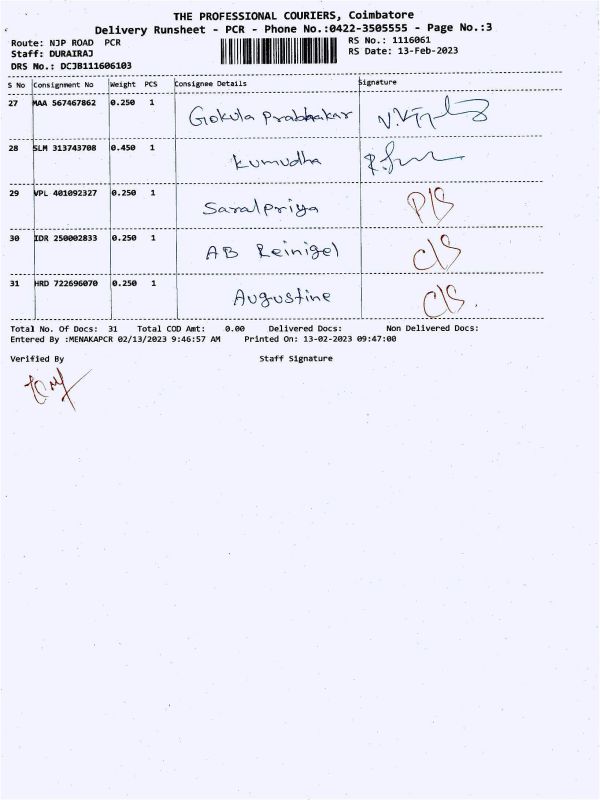 THE PROFESSIONAL COURIERS, Coimbatore
Delivery Runsheet - PCR - Phone No.:0422-3505555 - Page No.:3
Route: NJP ROAD PCR
RS No.: 1116061
Staff: DURAIRAJ
RS Date: 13-Feb-2023
DRS No.: DCJB111606103
S No Consignment No Weight PCS Consignee Details Signature
27 MAA 567467862 0.250 1 Gokula Prabhakar
28 SLM 313743708 0.450 1 Kumudha
29 VPL 401092327 0.250 1 Saralpriya P/S
30 IDR 250002833 0.250 1 AB Reinigel C/S
31 HRD 722696070 0.250 1 Augustine C/S.
Total No. Of Docs: 31 Total COD Amt: 0.00 Delivered Docs: Non Delivered Docs:
Entered By :MENAKAPCR 02/13/2023 9:46:57 AM Printed On: 13-02-2023 09:47:00
Verified By Staff Signature